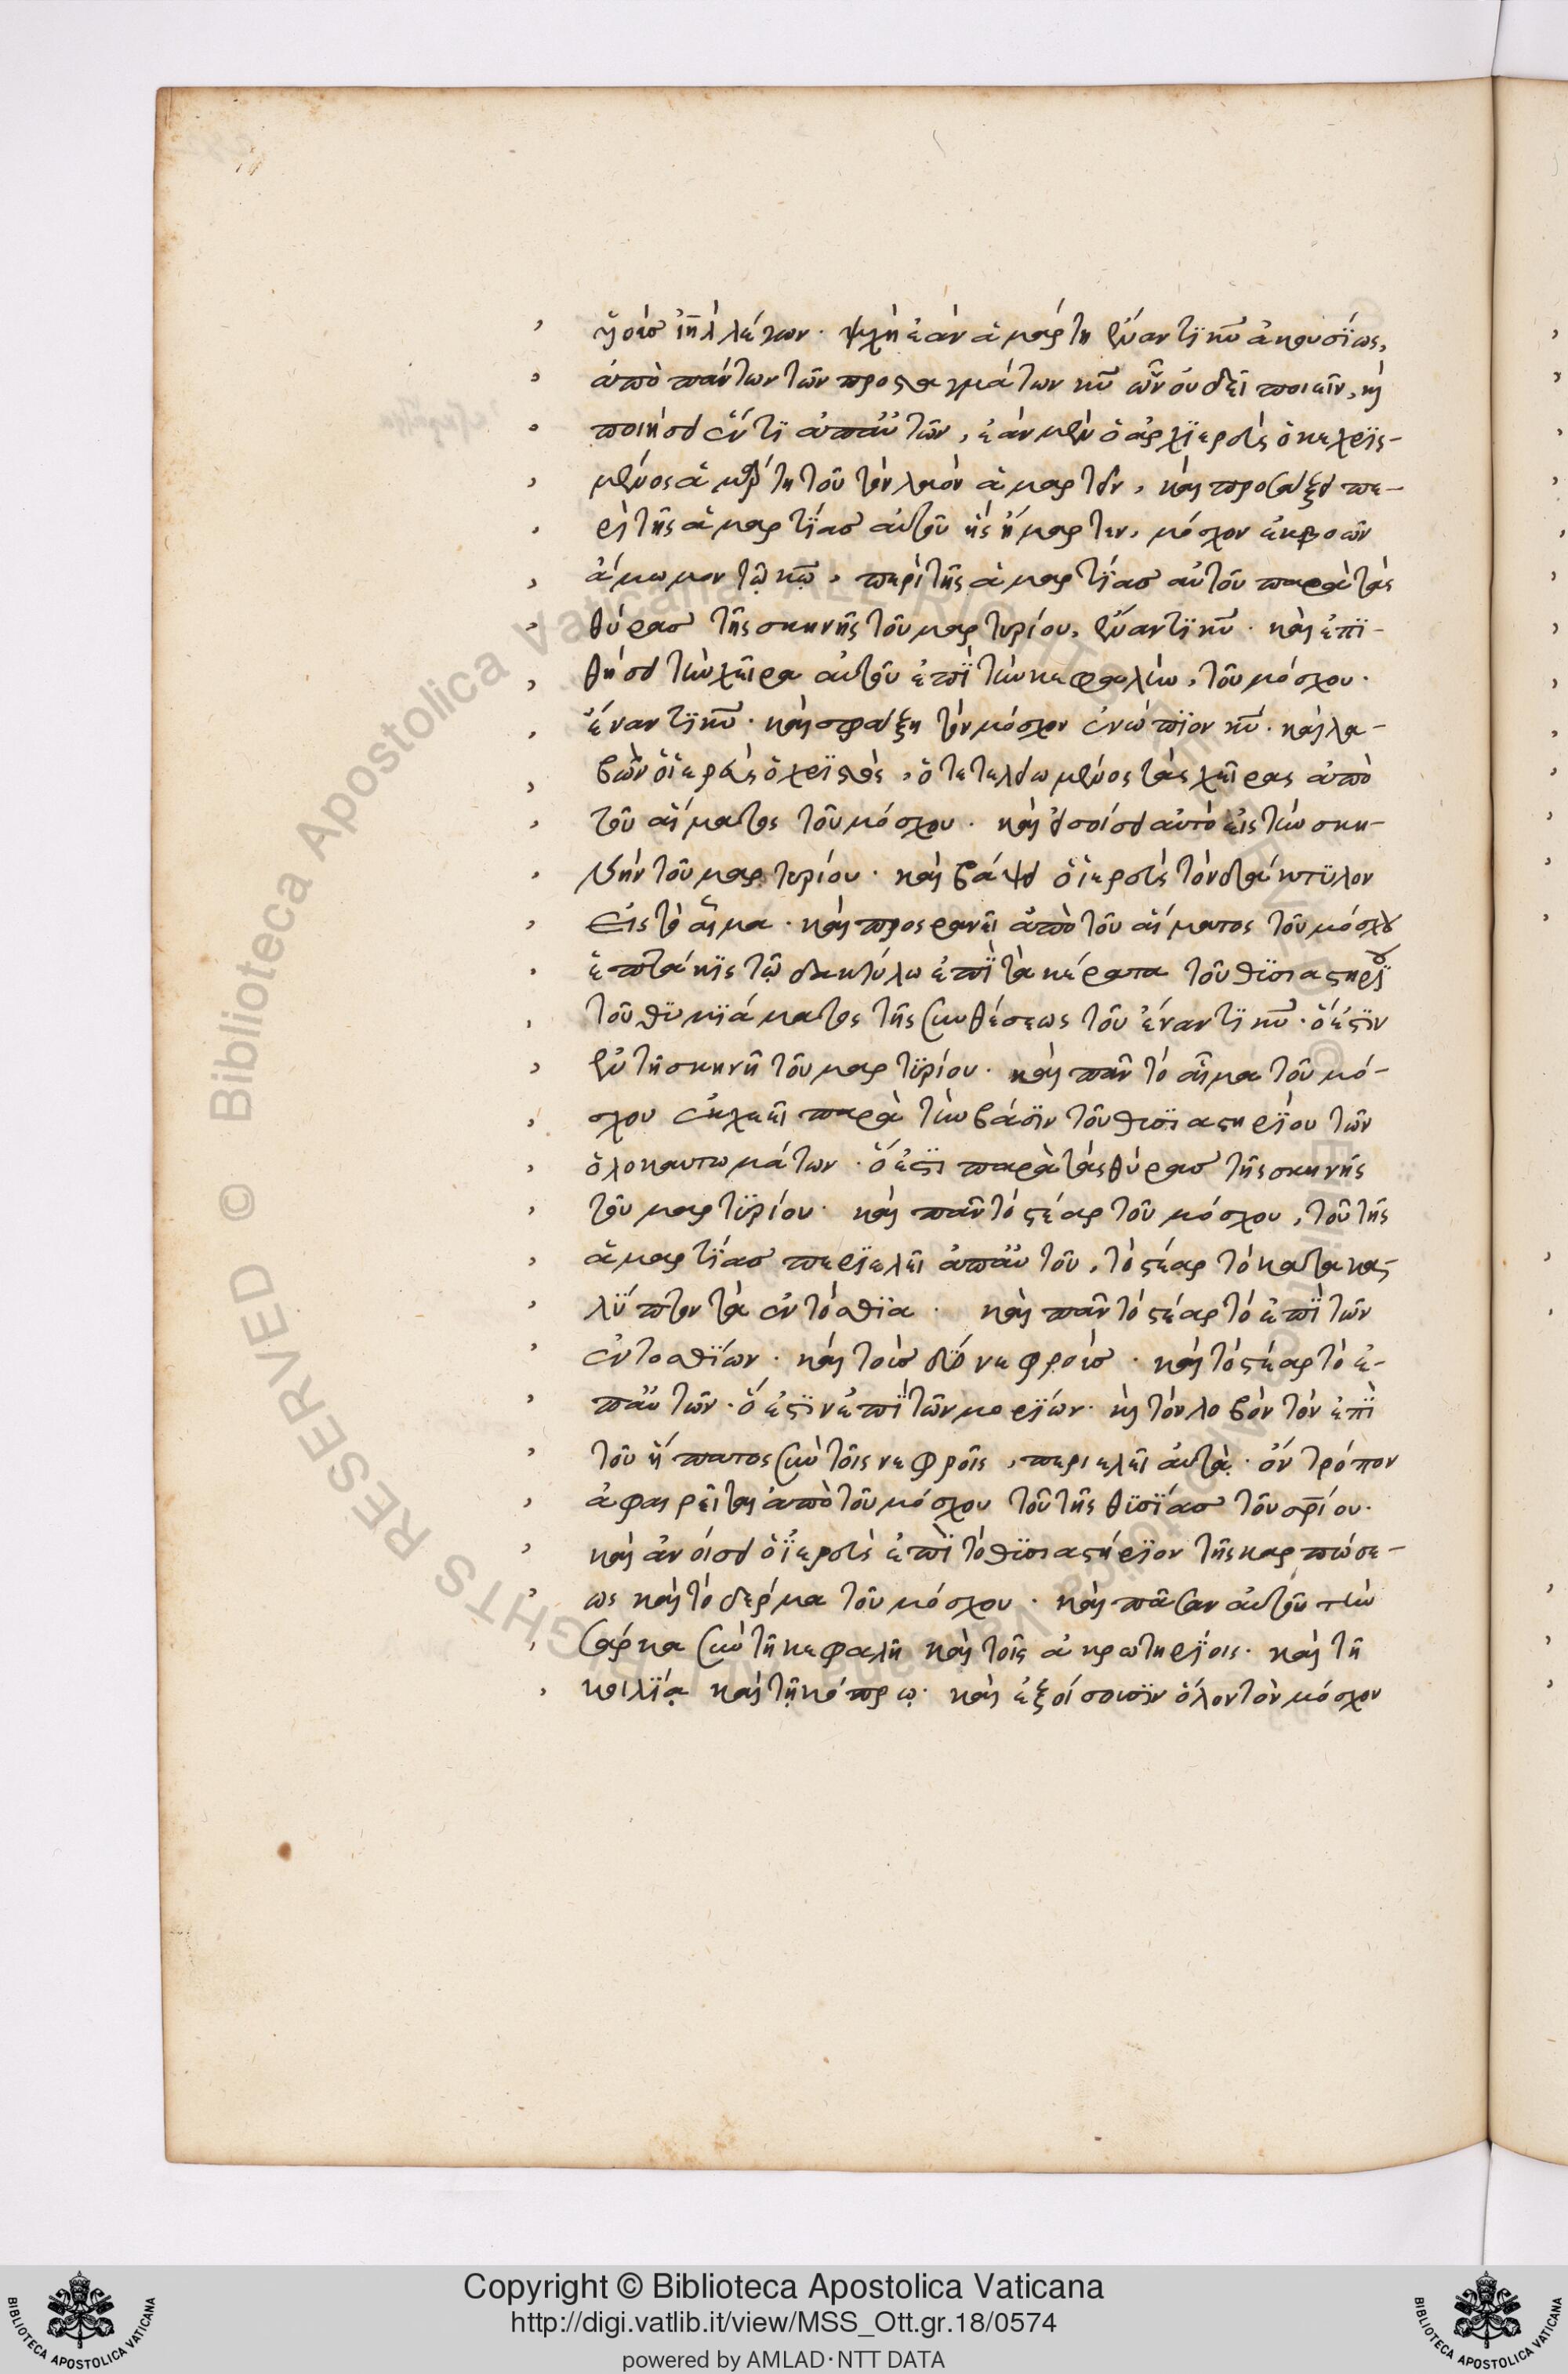 ὑοὺσ ἰηλ λέγων· ψυχὴ ἐὰν ἁμάρτη ἔναντϊ κυ ἀκουσίως,
ἀπὸ πάντων τῶν προσταγμάτων κυ ὧν οὐ δεῖ ποιεῖν, κὴ
ποιήσει ἕν τϊ ἀπαὐτῶν, ἐὰν μὲν ὁ ἀρχϊερεὺς ὁ κεχρϊς-
μένος ἁμάρτη τοῦ τὸν λαὸν ἁμαρτεῖν, καὶ προσάξει πε-
ρὶ τῆς ἁμαρτΐασ αὐτοῦ ἧς ἥμαρτεν, μόσχον ἐκ βοῶν
ἄμωμον τῷ κω, περὶ τῆς ἁμαρτΐασ αὐτοῦ παρὰ τὰς
θύρασ τῆς σκηνῆς τοῦ μαρτυρίου, ἔναντϊ κυ· καὶ ἐπϊ-
θήσει τὴν χεῖρα αὐτοῦ ἐπῒ τὴν κεφαλὴν, τοῦ μόσχου·
ἔναντϊ κυ· καὶ σφάξη τὸν μόσχον ἐνώπϊον κυ· καὶ λα-
βὼν ὁ ἱερεὺς ὁ χρϊστὸς, ὁ τετελειωμένος τὰς χεῖρας ἀπὸ
τοῦ αἵματος τοῦ μόσχου· καὶ εἰσοίσει αὐτὸ εἰς τὴν σκη-
νὴν τοῦ μαρτυρίου· καὶ βάψει ὁ ἱερεὺς τὸν δάκτϋλον
εἰς τὸ αἷμα· καὶ προσρανεῖ ἀπὸ τοῦ αἵματος τοῦ μόσχου
ἑπτάκϊς τῷ δακτύλω ἐπῒ τὰ κέρατα τοῦ θϋσιαστηρΐου
τοῦ θϋμϊάματος τῆς συνθέσεως τοῦ ἔναντϊ κυ· ὅ ἐστϊν
ἐν τῆ σκηνῆ τοῦ μαρτϋρίου· καὶ πᾶν τὸ αἷμα τοῦ μό-
σχου ἐκχεεῖ παρὰ τὴν βάσϊν τοῦ θυσϊαστηρΐου τῶν
ὁλοκαυτωμάτων· ὅ ἐστϊ παρὰ τὰς θύρασ τῆς σκηνῆς
τοῦ μαρτϋρίου· καὶ πᾶν τὸ στέαρ τοῦ μόσχου, τοῦ τῆς
ἁμαρτΐασ περϊελεῖ ἀπαὐτοῦ, τὸ στέαρ τὸ κατακα-
λΰπτον τὰ ἐντόσθϊα· καὶ πᾶν τὸ στέαρ τὸ ἐπῒ τῶν
ἐντοσθΐων· καὶ τοὺσ δύο νεφροὺσ· καὶ τὸ στέαρ τὸ ἐ-
παὐτῶν· ὅ ἐστϊν ἐπῒ τῶν μηρΐων· κὴ τὸν λοβὸν τὸν ἐπῒ
τοῦ ἥπατος σὺν τοῖς νεφροῖς, περιελεῖ αὐτὰ· ὃν τρόπον
ἀφαιρεῖται ἀπὸ τοῦ μόσχου τοῦ τῆς θϋσΐασ τοῦ σρίου·
καὶ ἀνοίσει ὁ ἱερεὺς ἐπῒ τὸ θϋσιαστήρϊον τῆς καρπώσε-
ως καὶ τὸ δέρμα τοῦ μόσχου· καὶ πᾶσαν αὐτοῦ τὴν
σάρκα σὺν τῆ κεφαλῆ καὶ τοῖς ἀκρωτηρΐοις· καὶ τῆ
κοιλΐᾳ καὶ τῇ κόπρῳ· καὶ ἐξοίσουσϊν ὅλον τὸν μόσχον
Biblioteca Apostolica Vaticana ALL RIGHTS RESERVED ©
Copyright © Biblioteca Apostolica Vaticana
http://digi.vatlib.it/view/MSS_Ott.gr.18/0574
powered by AMLAD·NTT DATA
BIBLIOTECA APOSTOLICA VATICANA
BIBLIOTECA APOSTOLICA VATICANA